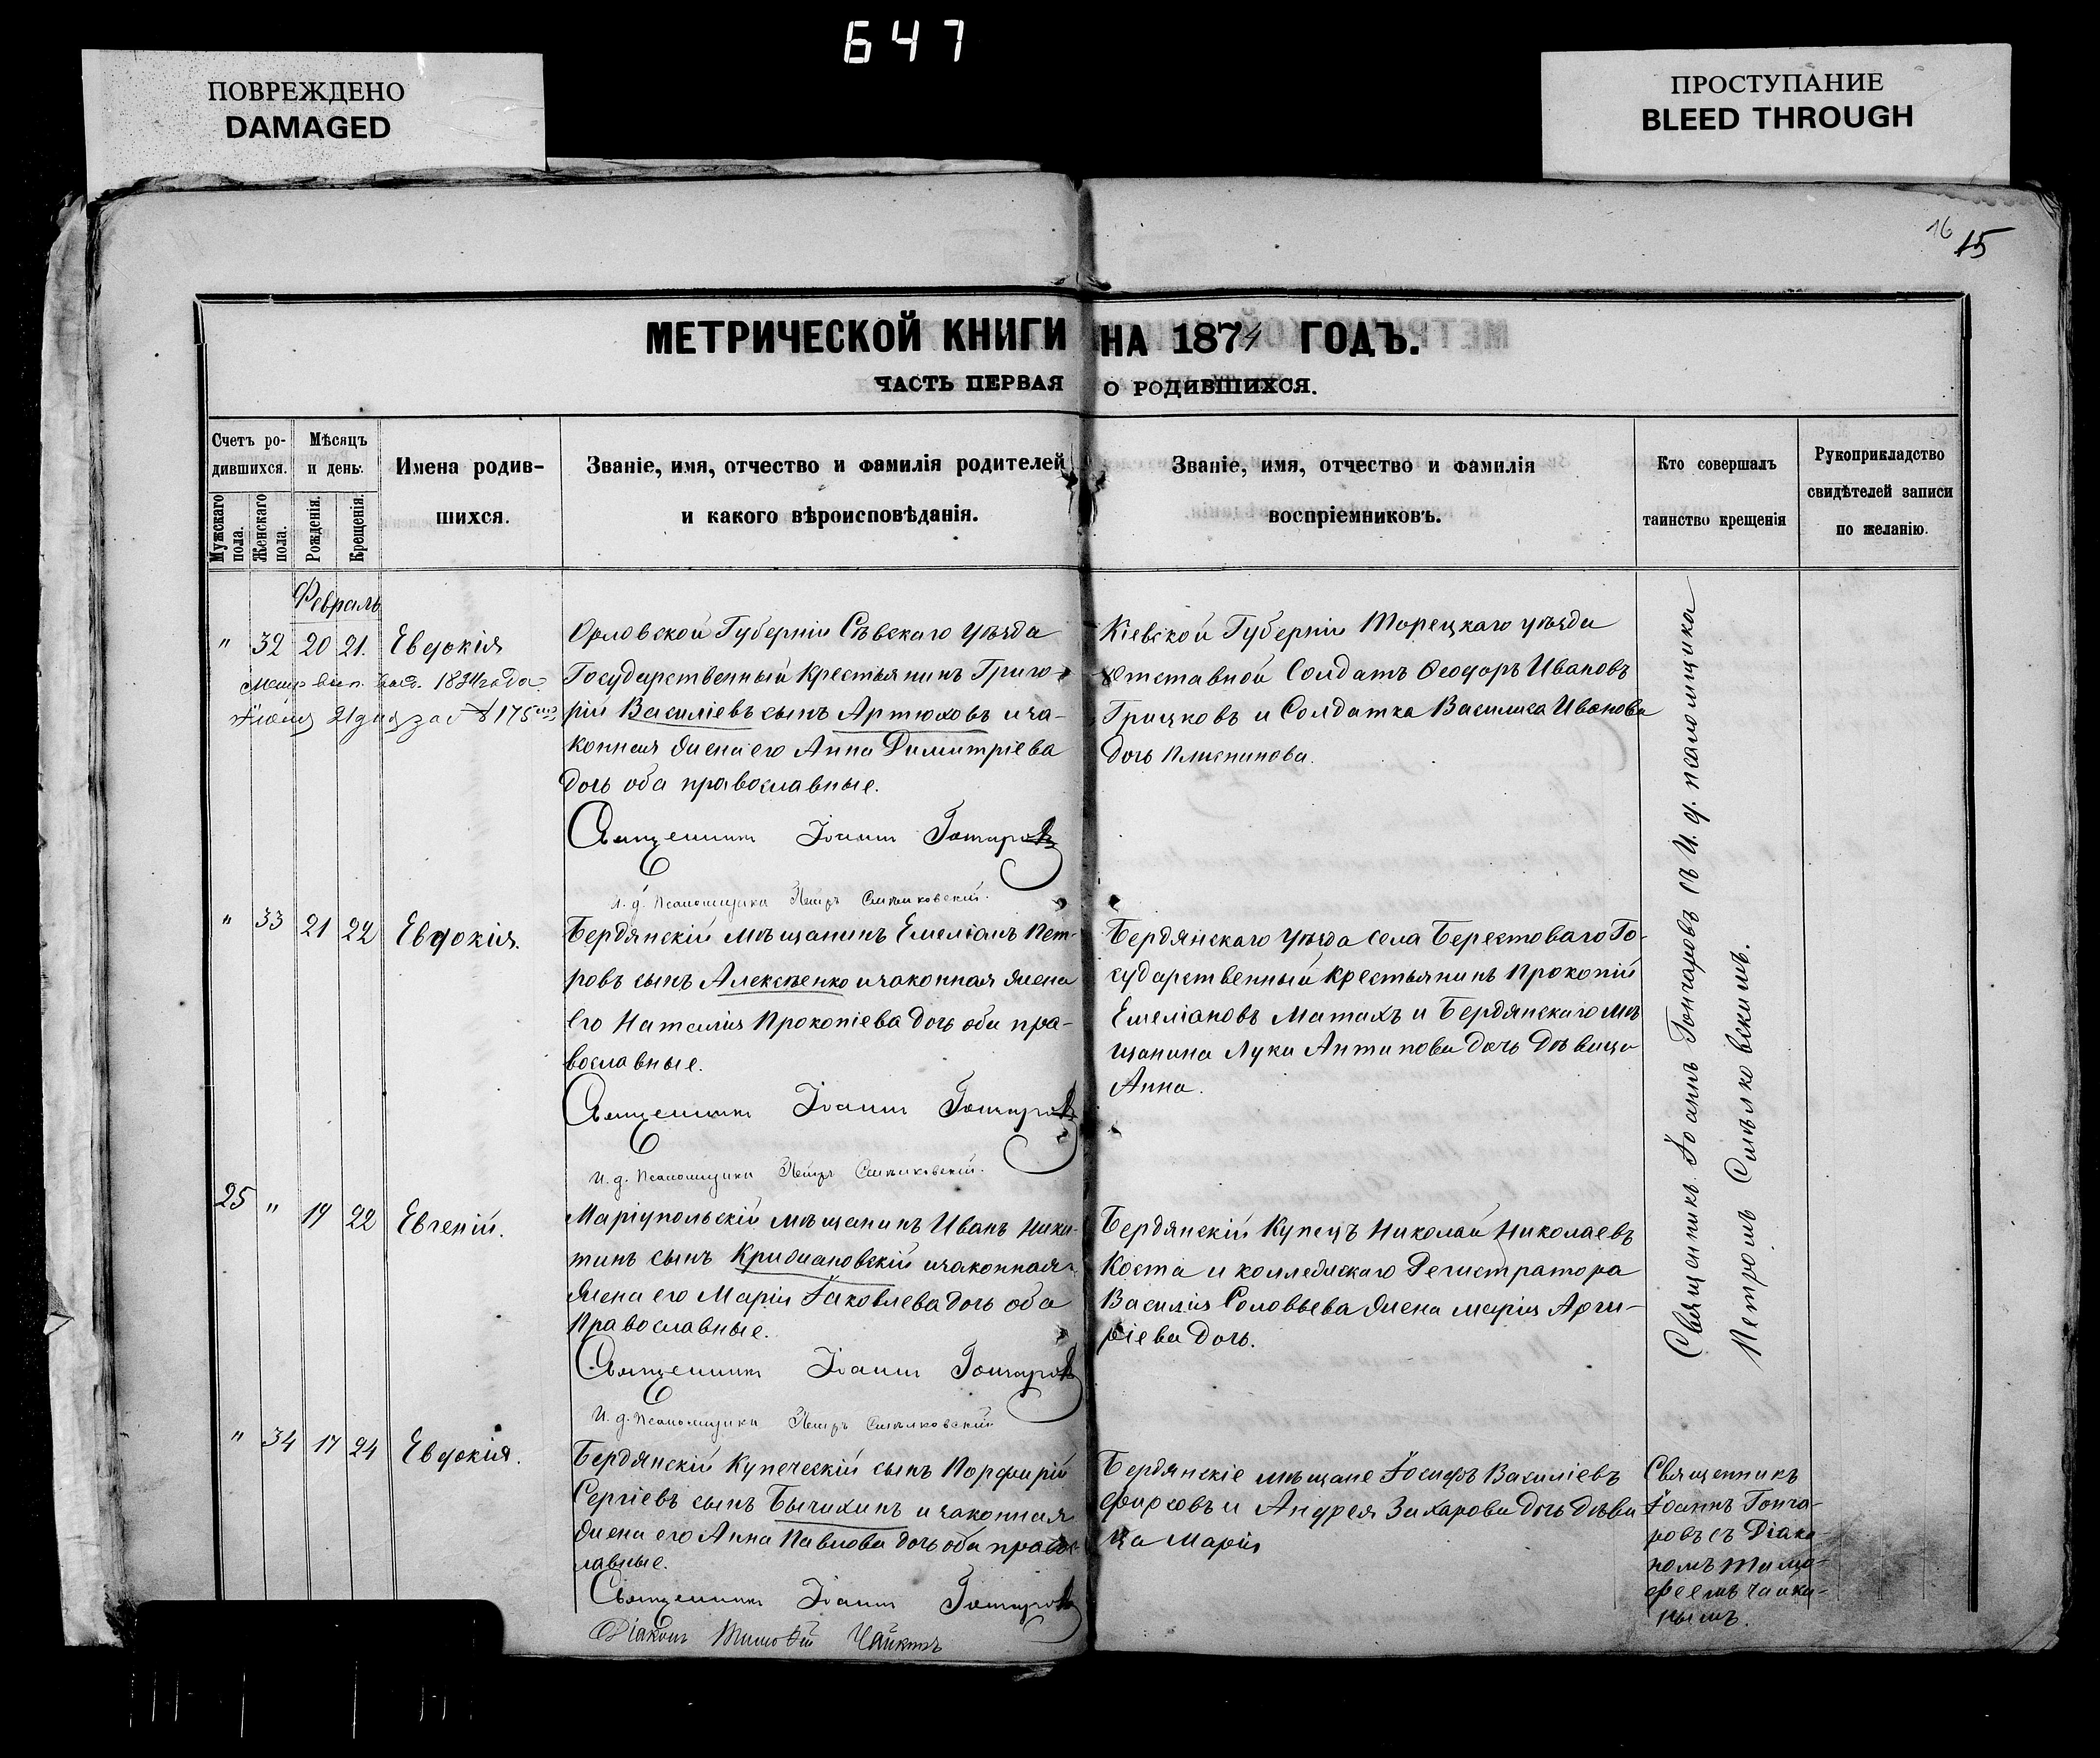 647
ПОВРЕЖДЕНО
DAMAGED
ПРОСТУПАНИЕ
BLEED THROUGH
16 15
МЕТРИЧЕСКОЙ КНИГИ НА 1874 ГОДЪ.
ЧАСТЬ ПЕРВАЯ О РОДИВШИХСЯ.
Счетъ ро-
дившихся.
Мужскаго пола.
Женскаго пола.
Мѣсяцъ
и день.
Рожденія.
Крещенія.
Имена родив-
шихся.
Званіе, имя, отчество и фамилія родителей
и какого вѣроисповѣданія.
Званіе, имя, отчество и фамилія
воспріемниковъ.
Кто совершалъ
таинство крещенія
Рукоприкладство
свидѣтелей записи
по желанію.
Февраль
" 32 20 21. Евдокія
вып. 1894 года
Іюня 21 дня за № 175
Орловской Губерніи Сѣвскаго уѣзда
Государственный Крестьянинъ Григо-
рій Василіевъ сынъ Артюховъ и за-
конная жена его Анна Димитріева
дочь оба православные.
Священникъ Іоаннъ Гончаровъ
И. д. Псаломщика Петръ Смѣлковскій.
Кіевской Губерніи уѣзда
Отставной Солдатъ Ѳеодоръ Ивановъ
Грицковъ и Солдатка Василиса Иванова
дочь
" 33 21 22 Евдокія.
Бердянскій мѣщанинъ Емеліанъ Пет-
ровъ сынъ Алексѣенко и законная жена
его Наталія Прокопіева дочь оба пра-
вославные.
Священникъ Іоаннъ Гончаровъ
И. д. Псаломщика Петръ Смѣлковскій.
Бердянскаго уѣзда села Берестоваго Го-
сударственный крестьянинъ Прокопій
Емеліановъ Матахъ и Бердянскаго мѣ
щанина Луки Антипова дочь дѣвица
Анна.
25 " 19 22 Евгеній.
Маріупольскій мѣщанинъ Иванъ Ники-
тинъ сынъ Крижановскій и законная
жена его Марія Іаковлева дочь оба
Православные.
Священникъ Іоаннъ Гончаровъ
И. д. Псаломщика Петръ Смѣлковскій
Бердянскій Купецъ Николай Николаевъ
Коста и коллежскаго Регистратора
Василія Соловьева жена Марія Арги-
ріева дочь.
Священникъ Іоаннъ Гончаровъ съ И. д. псаломщика
Петромъ Смѣлковскимъ.
" 34 17 24 Евдокія.
Бердянскій Купеческій сынъ Порфирій
Сергіевъ сынъ Бычихинъ и законная
жена его Анна Павлова дочь оба правос-
лавные.
Священникъ Іоаннъ Гончаровъ
Діаконъ Тимоѳей Чайкинъ
Бердянскіе мѣщане Іосифъ Василіевъ
Фирсовъ и Андрея Захарова дочь дѣви
ца Марія
Священникъ
Іоаннъ Гонча-
ровъ съ Діако-
номъ Тимо-
феемъ Чайки-
нымъ.